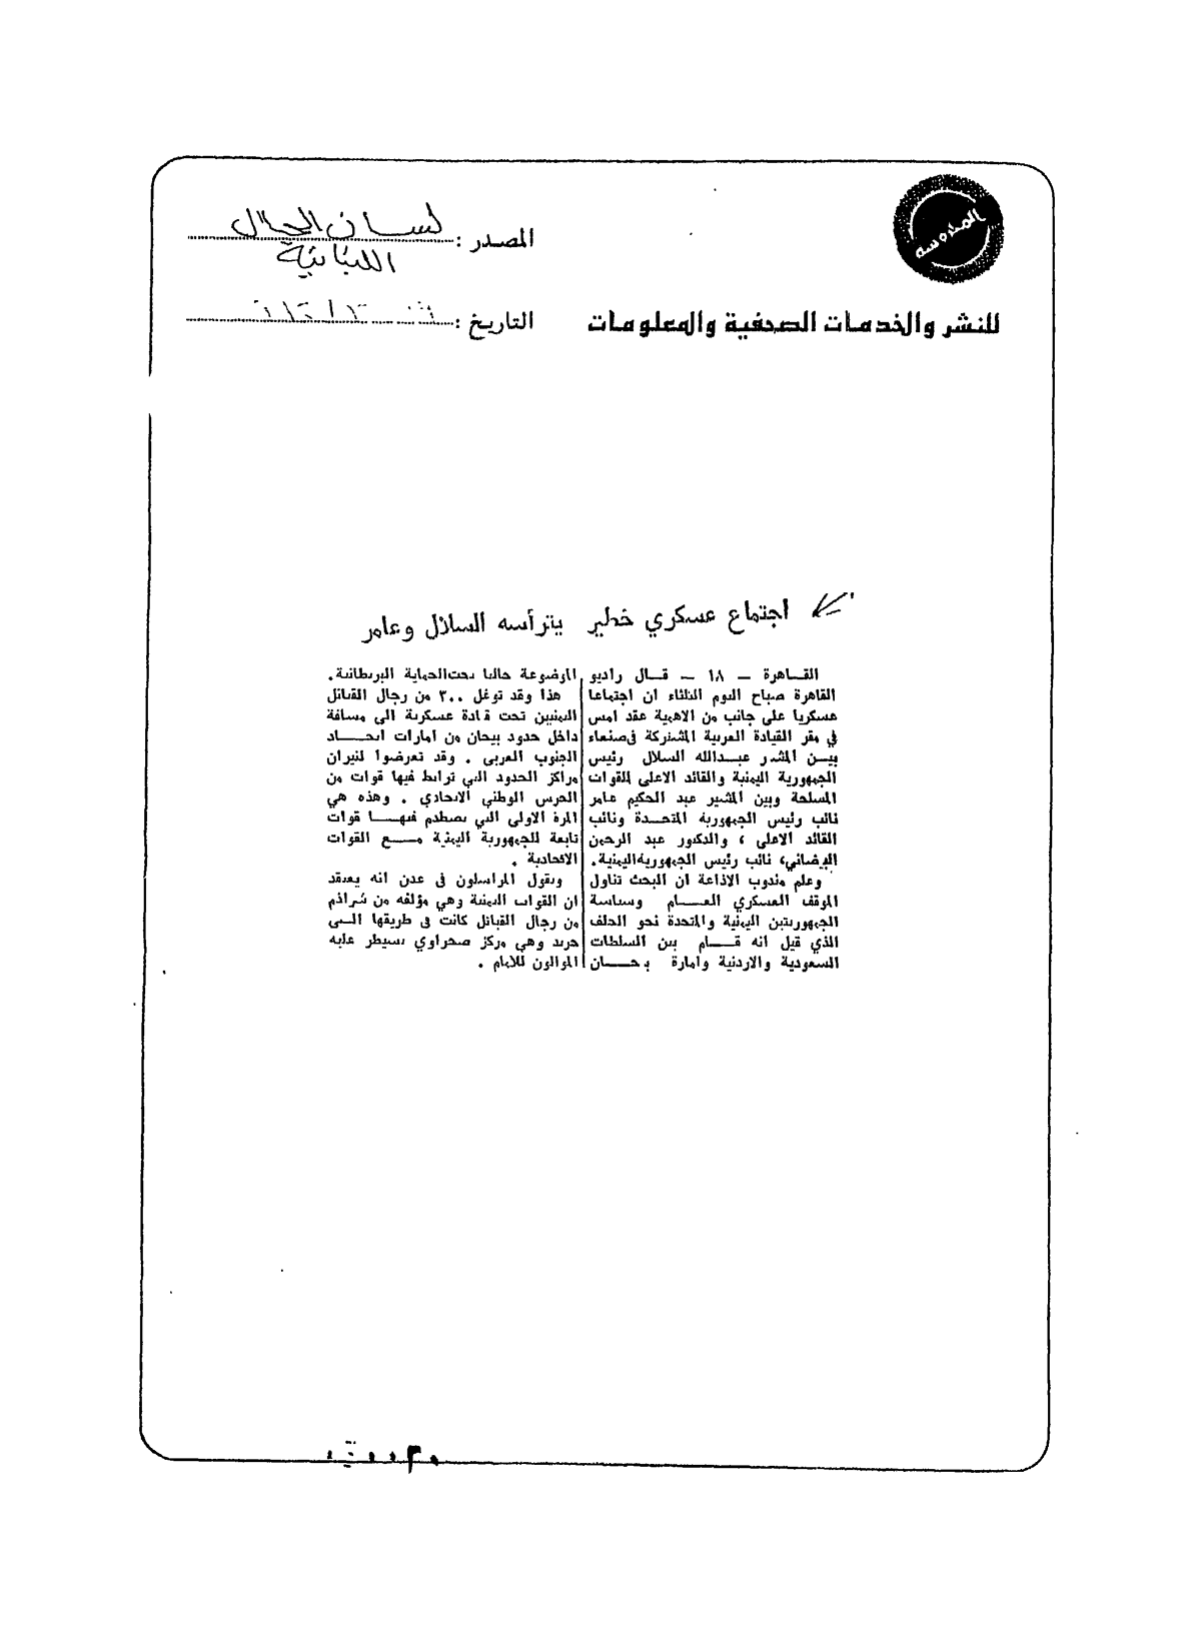 المحروسة
للنشر والخدمات الصحفية والمعلومات
المصدر : لسان الحال
اللبنانية
التاريخ :
اجتماع عسكري خطير يترأسه السلال وعامر
القـاهرة – ١٨ – قـال راديو
القاهرة صباح اليوم الثلثاء ان اجتماعا
عسكريا على جانب من الاهمية عقد امس
في مقر القيادة العربية المشتركة في صنعاء
بيـن المشير عبـدالله السلال رئيس
الجمهورية اليمنية والقائد الاعلى للقوات
المسلحة وبين المشير عبد الحكيم عامر
نائب رئيس الجمهورية المتحـدة ونائب
القائد الاعلى ، والدكتور عبد الرحمن
البيضاني، نائب رئيس الجمهورية اليمنية.
وعلم مندوب الاذاعة ان البحث تناول
الموقف العسكري العـام وسياسة
الجمهوريتين اليمنية والمتحدة نحو الحلف
الذي قيل انه قـام بين السلطات
السعودية والاردنية وامارة بيحـان
الموضوعة حاليا تحت الحماية البريطانية.
هذا وقد توغل ٣٠٠ من رجال القبائل
اليمنيين تحت قيادة عسكرية الى مسافة
داخل حدود بيحان من امارات اتحـاد
الجنوب العربي . وقد تعرضوا لنيران
مراكز الحدود التي ترابط فيها قوات من
الحرس الوطني الاتحادي . وهذه هي
المرة الاولى التي تصطدم فيهـا قوات
تابعة للجمهورية اليمنية مـع القوات
الاتحادية .
ويقول المراسلون في عدن انه يعتقد
ان القوات اليمنية وهي مؤلفة من شراذم
من رجال القبائل كانت في طريقها الـى
حريب وهي مركز صحراوي يسيطر عليه
الموالون للامام .